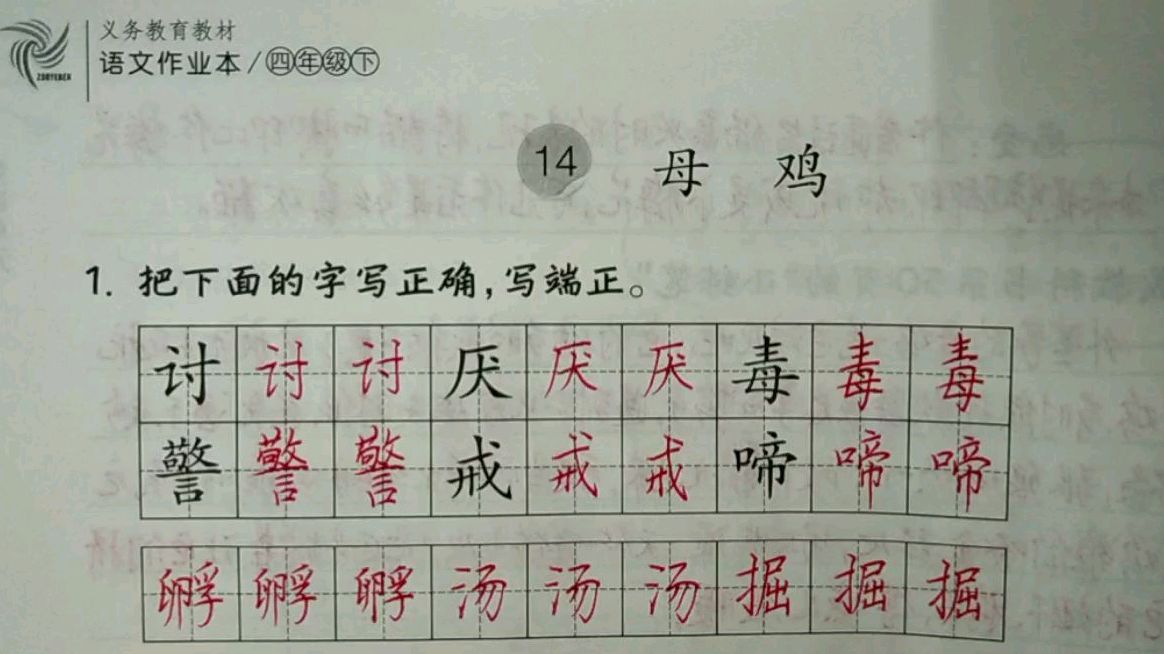 义务教育教材
语文作业本/四年级下
ZUOYEBEN
14 母 鸡
1. 把下面的字写正确,写端正。
讨 讨 讨 厌 厌 厌 毒 毒 毒
警 警 警 戒 戒 戒 啼 啼 啼
孵 孵 孵 汤 汤 汤 掘 掘 掘